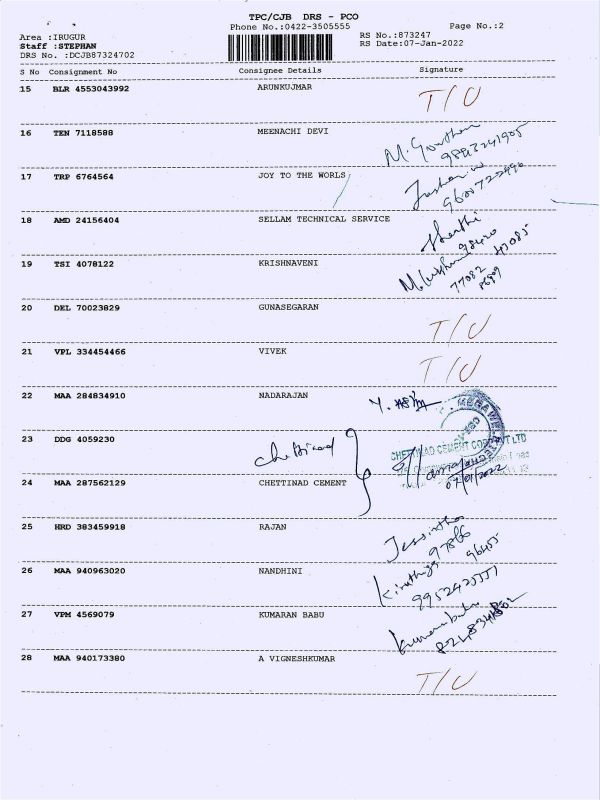 TPC/CJB DRS - PCO
Phone No.:0422-3505555 Page No.:2
Area :IRUGUR RS No.:873247
Staff :STEPHAN RS Date:07-Jan-2022
DRS No. :DCJB87324702
S No Consignment No Consignee Details Signature
15 BLR 4553043992 ARUNKUJMAR T/U
16 TEN 7118588 MEENACHI DEVI
M. Gowtham
9893241905
17 TRP 6764564 JOY TO THE WORLS
9600722490
18 AMD 24156404 SELLAM TECHNICAL SERVICE
98420
47085
19 TSI 4078122 KRISHNAVENI
77082
20 DEL 70023829 GUNASEGARAN T/U
21 VPL 334454466 VIVEK T/U
22 MAA 284834910 NADARAJAN
23 DDG 4059230 Chettinad
CHETTINAD CEMENT CORPN LTD
24 MAA 287562129 CHETTINAD CEMENT
07/01/2022
25 HRD 383459918 RAJAN
Jessintha
97866
96455
26 MAA 940963020 NANDHINI
Kiruthiga
9952425551
27 VPM 4569079 KUMARAN BABU
Kumarababu
28 MAA 940173380 A VIGNESHKUMAR T/U